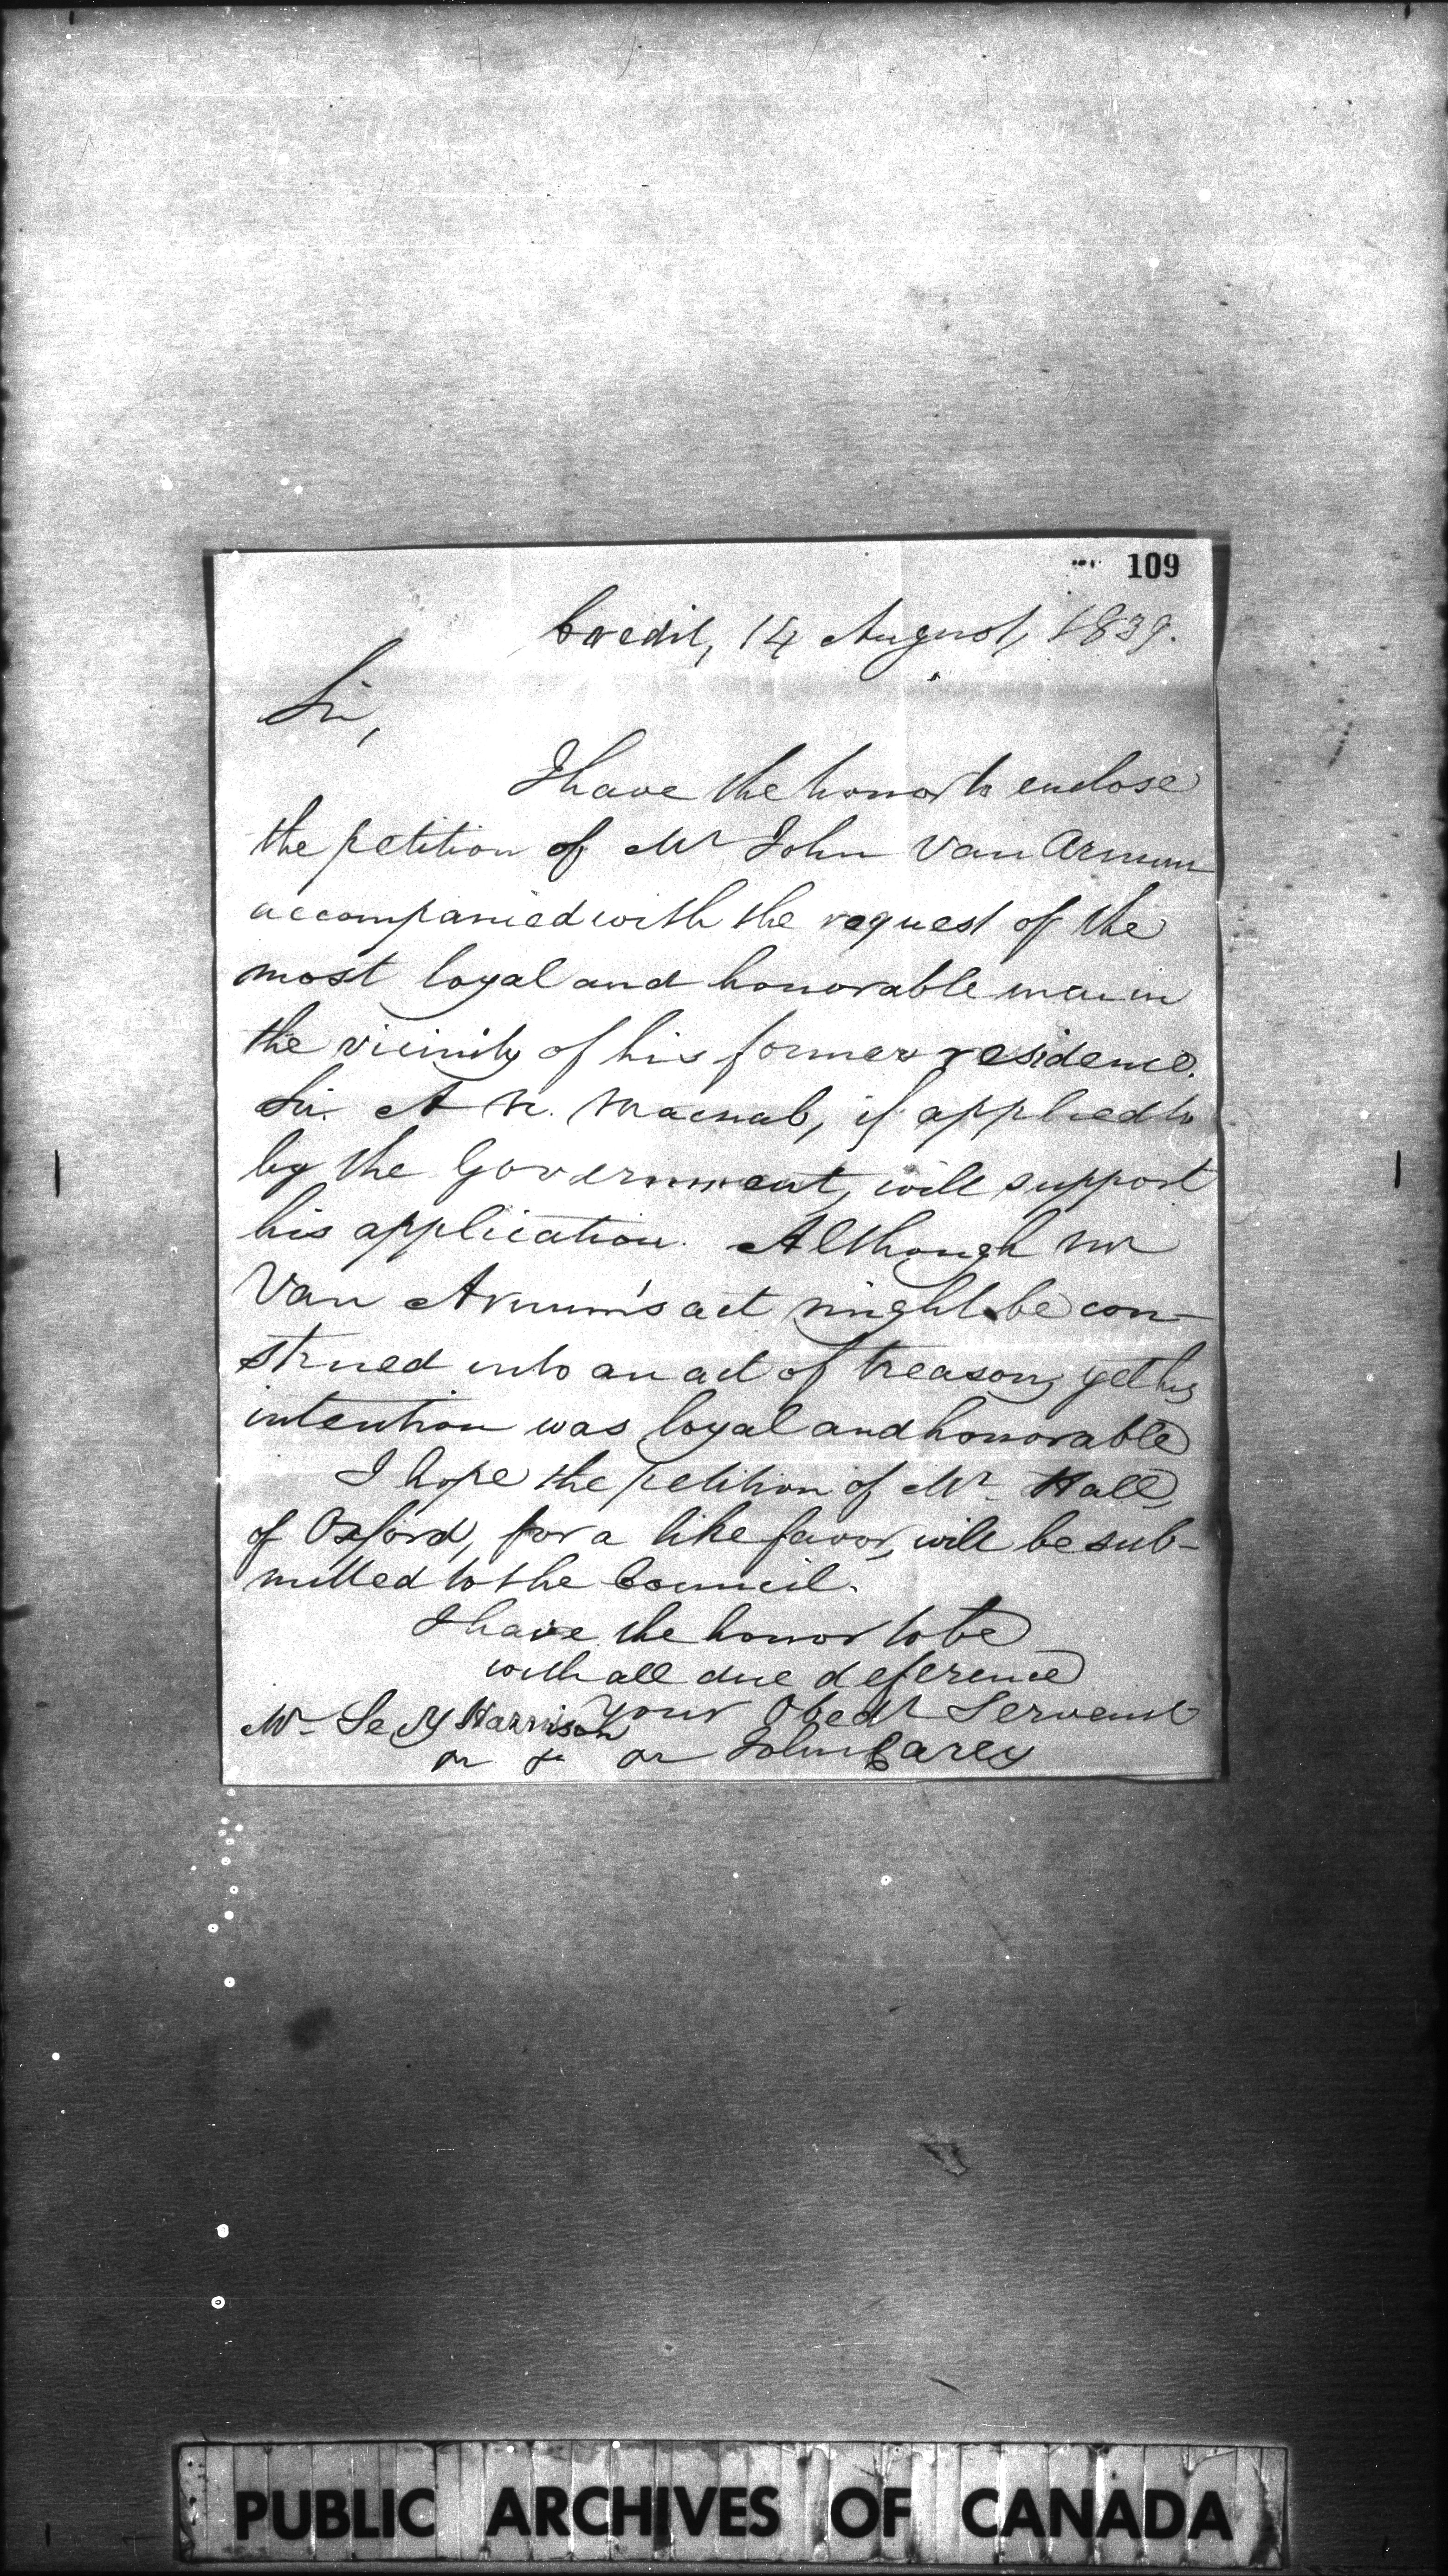 109
Credit, 14 August, 1839.
Sir,
I have the honor to enclose
the petition of Mr John Van Arnum
accompanied with the request of the
most loyal and honorable men in
the vicinity of his former residence.
Sir. A N. Macnab, if applied to
by the Government, will support
his application. Although Mr
Van Arnum's act might be con-
strued into an act of treason, yet his
intention was loyal and honorable
I hope the petition of Mr Hall,
of Oxford, for a like favor, will be sub-
mitted to the Council.
I have the honor to be
with all due deference
your Obedt Servant
Mr Secy Harrison
John Carey
PUBLIC ARCHIVES OF CANADA